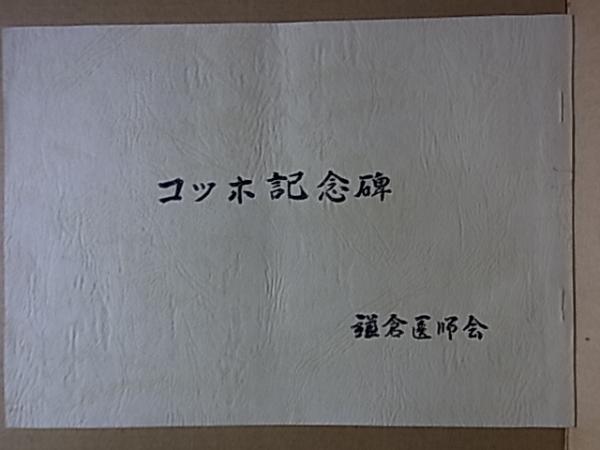 コッホ記念碑
鎌倉医師会